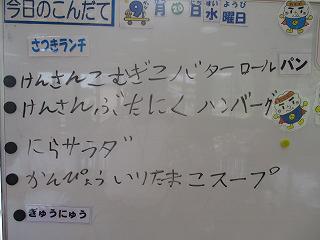 今日のこんだて 9月20日水曜日
さつきランチ
●けんさんこむぎこバターロールパン
●けんさんぶたにくハンバーグ
●にらサラダ
●かんぴょういりたまごスープ
●ぎゅうにゅう